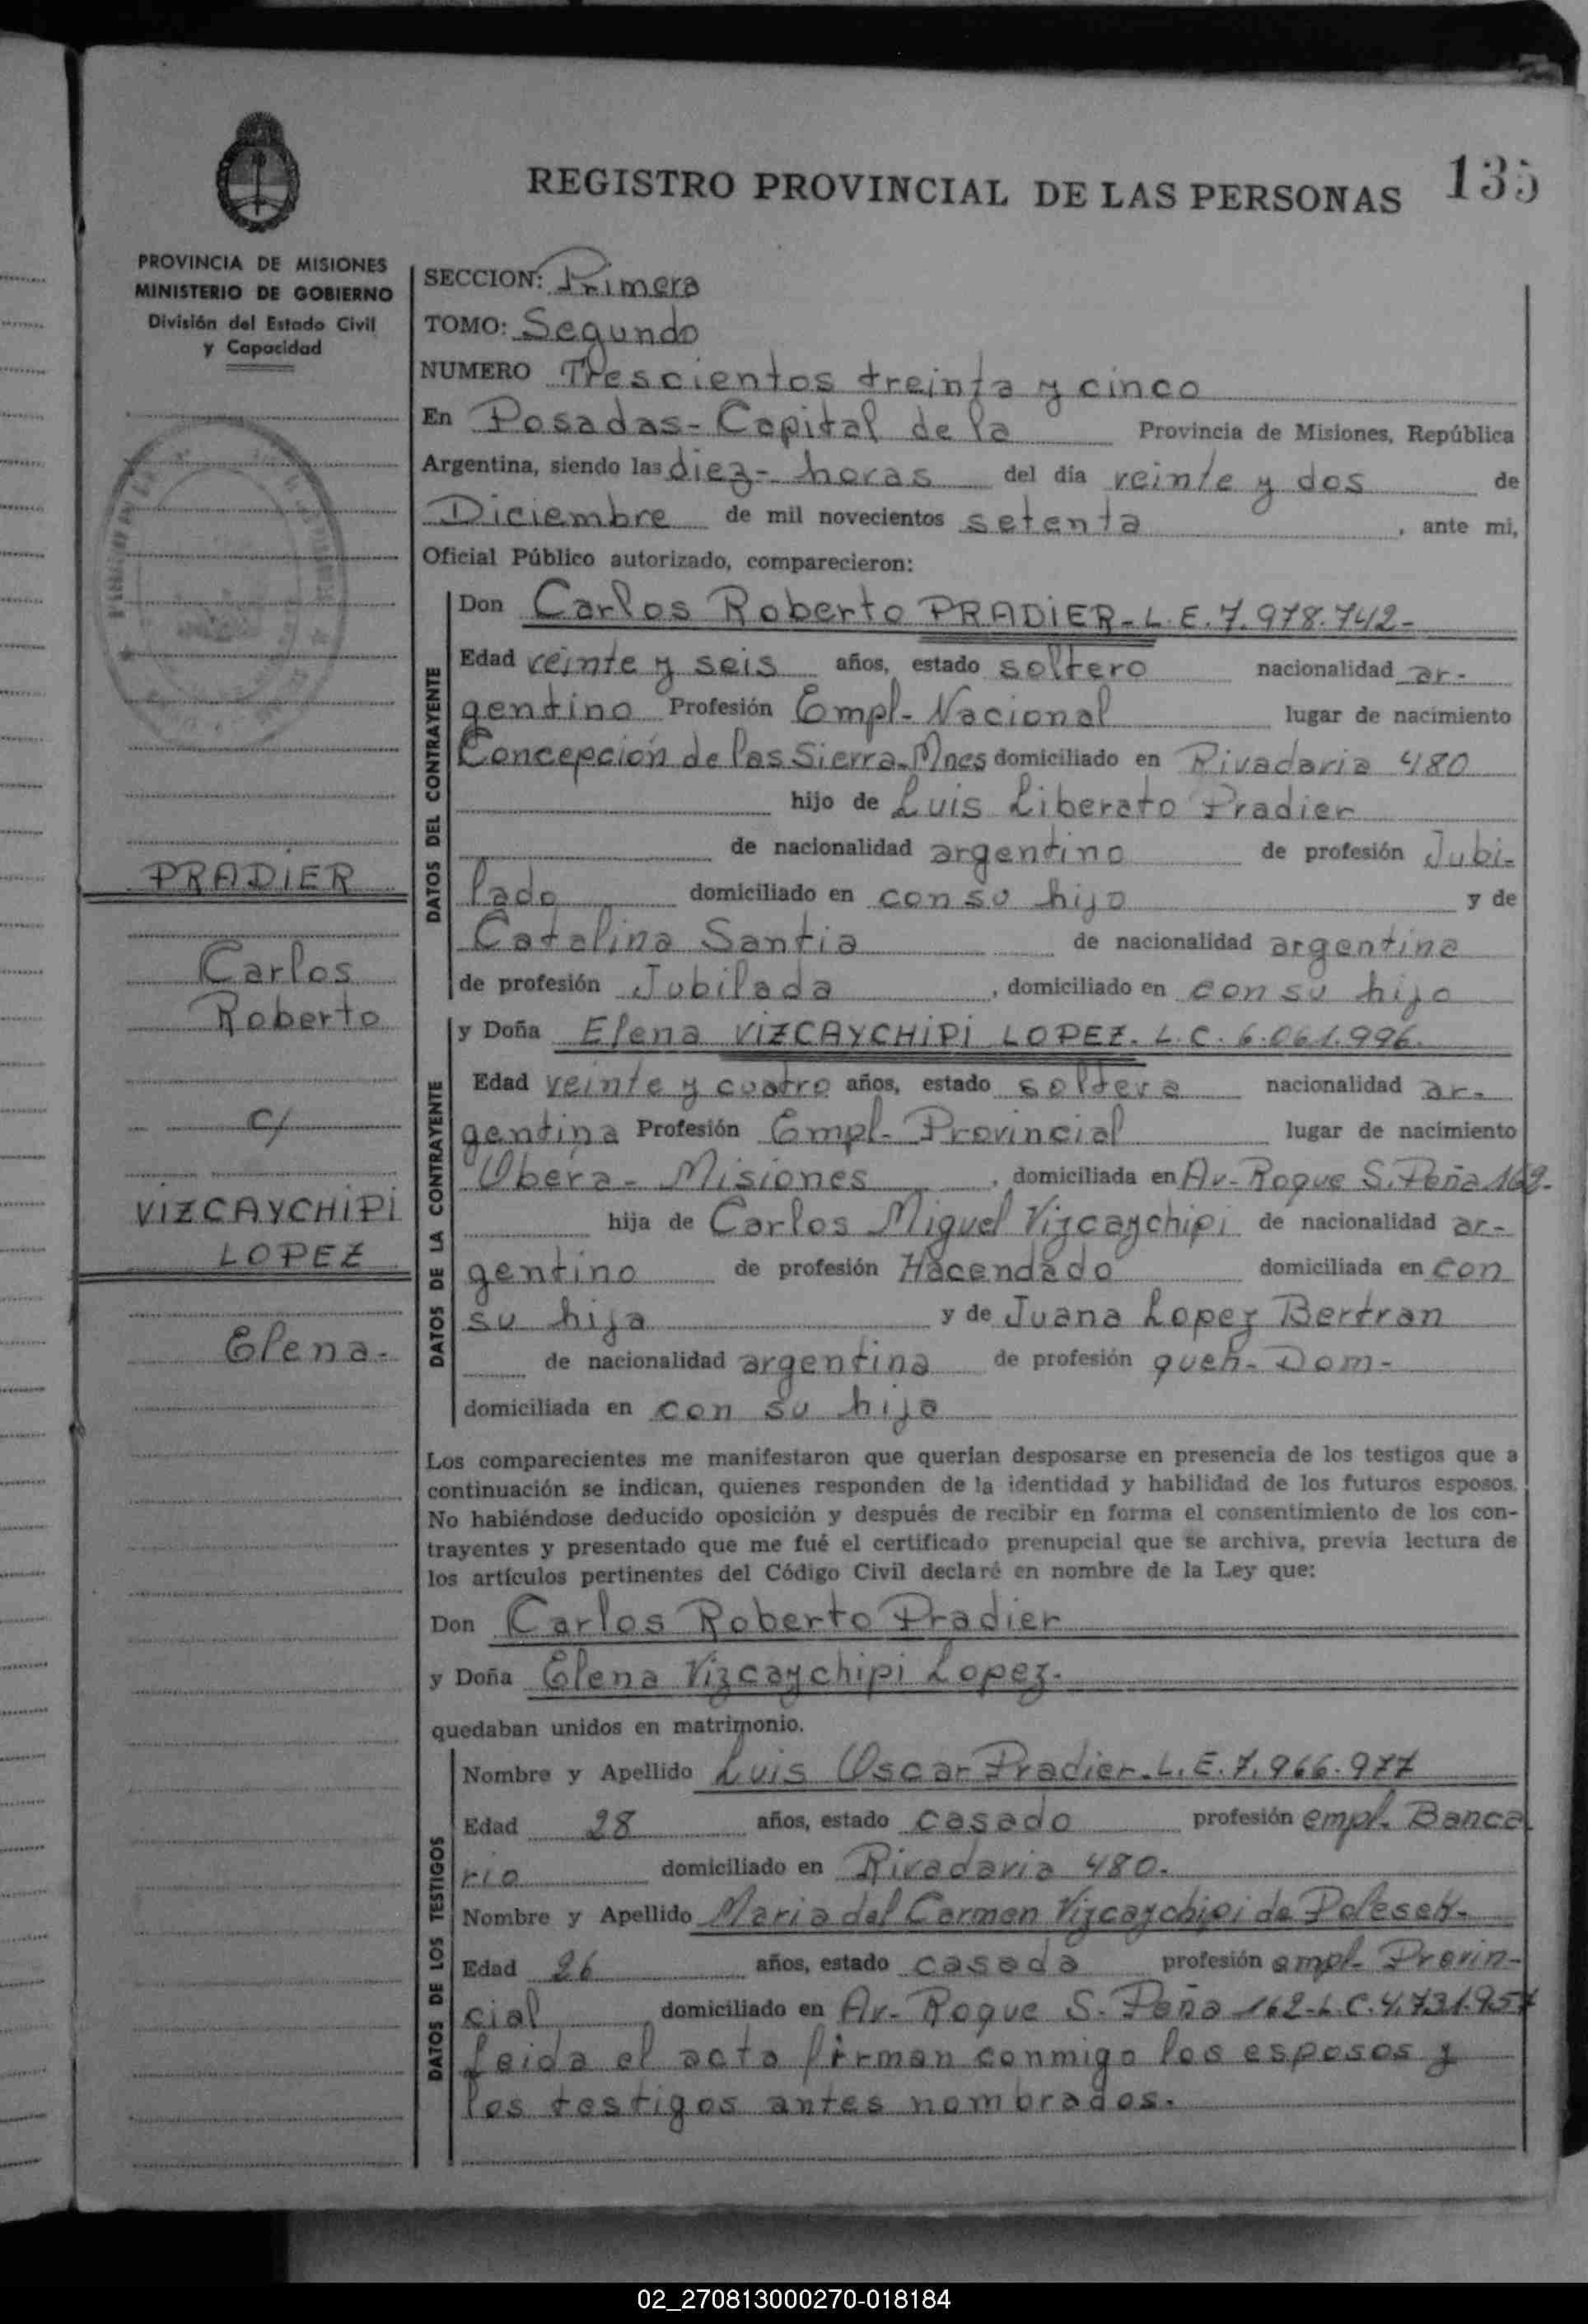 REGISTRO PROVINCIAL DE LAS PERSONAS 135
PROVINCIA DE MISIONES
MINISTERIO DE GOBIERNO
División del Estado Civil
y Capacidad
PRADIER
Carlos
Roberto
c/
VIZCAYCHIPI
LOPEZ
Elena-
SECCION: Primera
TOMO: Segundo
NUMERO Trescientos treinta y cinco
En Posadas-Capital de la Provincia de Misiones, República
Argentina, siendo las diez- horas del día veinte y dos de
Diciembre de mil novecientos setenta, ante mi,
Oficial Público autorizado, comparecieron:
DATOS DEL CONTRAYENTE
Don Carlos Roberto PRADIER-L.E.7.978.742-
Edad veinte y seis años, estado soltero nacionalidad ar-
gentino Profesión Empl-Nacional lugar de nacimiento
Concepción de las Sierra-Mnes domiciliado en Rivadavia 480
hijo de Luis Liberato Pradier
de nacionalidad argentino de profesión Jubi-
lado domiciliado en con su hijo y de
Catalina Santia de nacionalidad argentina
de profesión Jubilada, domiciliado en con su hijo
DATOS DE LA CONTRAYENTE
y Doña Elena VIZCAYCHIPI LOPEZ. L.C. 6.061.996.
Edad veinte y cuatro años, estado soltera nacionalidad ar-
gentina Profesión Empl-Provincial lugar de nacimiento
Oberá-Misiones, domiciliada en Av-Roque S.Peña 162-
hija de Carlos Miguel Vizcaychipi de nacionalidad ar-
gentino de profesión Hacendado domiciliada en con
su hija y de Juana Lopez Bertran
de nacionalidad argentina de profesión queh-Dom-
domiciliada en con su hija
Los comparecientes me manifestaron que querían desposarse en presencia de los testigos que a
continuación se indican, quienes responden de la identidad y habilidad de los futuros esposos.
No habiéndose deducido oposición y después de recibir en forma el consentimiento de los con-
trayentes y presentado que me fué el certificado prenupcial que se archiva, previa lectura de
los artículos pertinentes del Código Civil declaré en nombre de la Ley que:
Don Carlos Roberto Pradier
y Doña Elena Vizcaychipi Lopez.
quedaban unidos en matrimonio.
DATOS DE LOS TESTIGOS
Nombre y Apellido Luis Oscar Pradier.L.E.7.966.977
Edad 28 años, estado casado profesión empl. Banca
rio domiciliado en Rivadavia 480.
Nombre y Apellido Maria del Carmen Vizcaychipi de Polesek-
Edad 26 años, estado casada profesión empl-Provin-
cial domiciliado en Av-Roque S-Peña 162-L.C.4.731.957
Leida el acta firman conmigo los esposos y
los testigos antes nombrados.
02_270813000270-018184